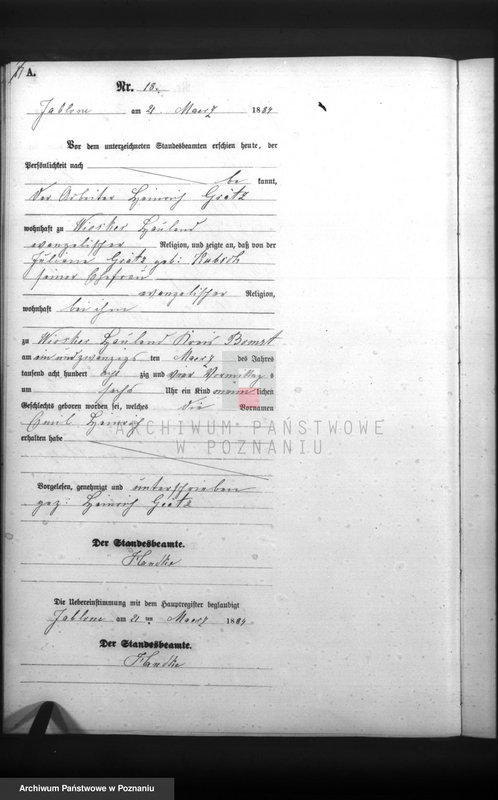 A.
Nr. 18.
Jablone am 21 Maerz 1884
Vor dem unterzeichneten Standesbeamten erschien heute, der
Persönlichkeit nach
be kannt,
der Arbeiter Heinrich Grätz
wohnhaft zu Wiosker Hauland
evangelischer Religion, und zeigte an, daß von der
Juliane Grätz geb:
seiner Ehefrau
evangelischer Religion,
wohnhaft bei ihm
zu Wiosker Hauland Kreis Bomst
am ein und zwanzigs ten Maerz des Jahres
tausend acht hundert acht zig und vier Vormittag s
um sechs Uhr ein Kind männ lichen
Geschlechts geboren worden sei, welches die Vornamen
Emil Heinrich
erhalten habe
Vorgelesen, genehmigt und unterschrieben
gez: Heinrich Grätz
Der Standesbeamte.
Die Uebereinstimmung mit dem Hauptregister beglaubigt
Jablone am 21 ten Maerz 1884
Der Standesbeamte.
ARCHIWUM PAŃSTWOWE
W POZNANIU
Archiwum Państwowe w Poznaniu